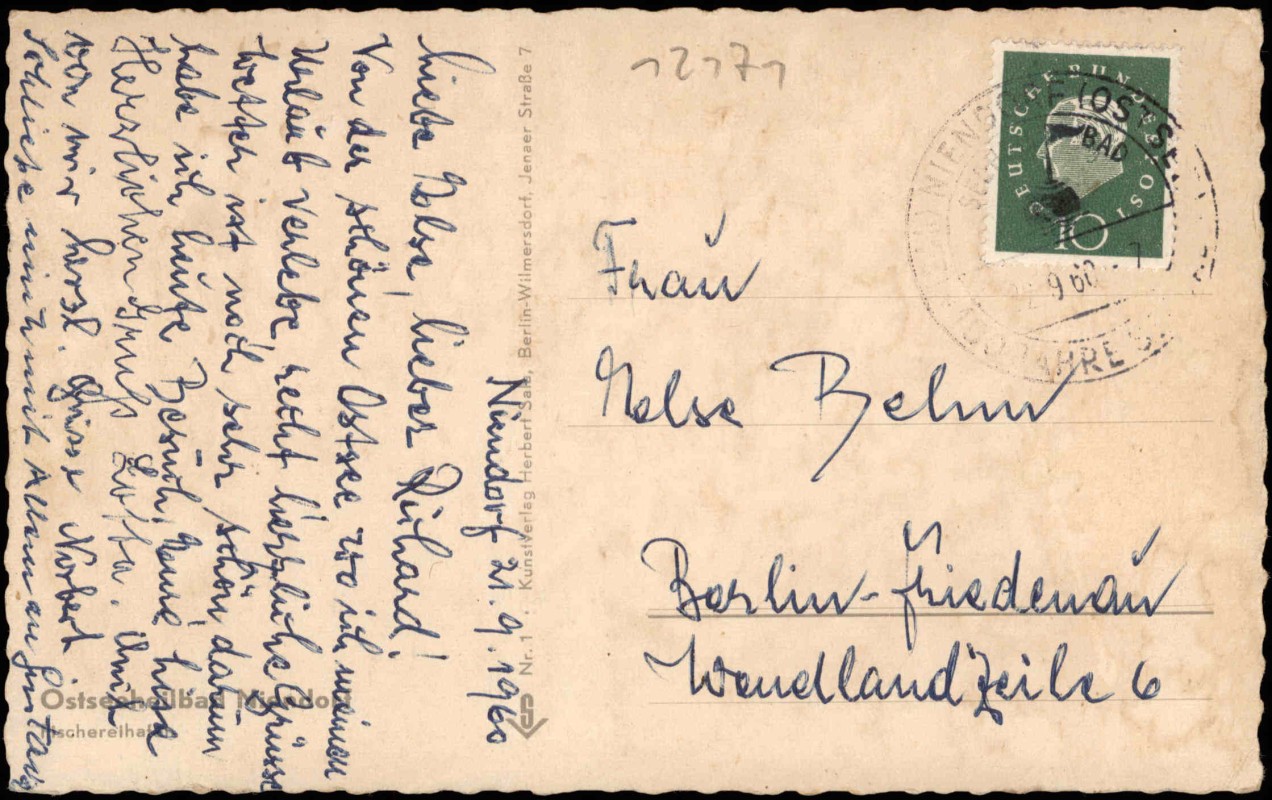 12171
DEUTSCHE BUNDESPOST
10
NIENDORF (OSTSEE)
BAD
9.60
100 JAHRE
Niendorf 21.9.1960
Liebe Ilse, lieber Richard!
Von der schönen Ostsee wo ich meinen
Urlaub verlebe, recht herzliche Grüsse
Wetter ist noch sehr schön, darum
habe ich heute Besuch,
Herzlichen Gruß Lotte. Auch
von mir herzl. Grüsse Norbert
Schliesse mich mit Allem an
Nr. 1 · Kunstverlag Herbert Sala, Berlin-Wilmersdorf, Jenaer Straße 7
Frau
Ilse Behm
Berlin-Friedenau
Wendlandzeile 6
Ostseeheilbad Niendorf
Fischereihafen